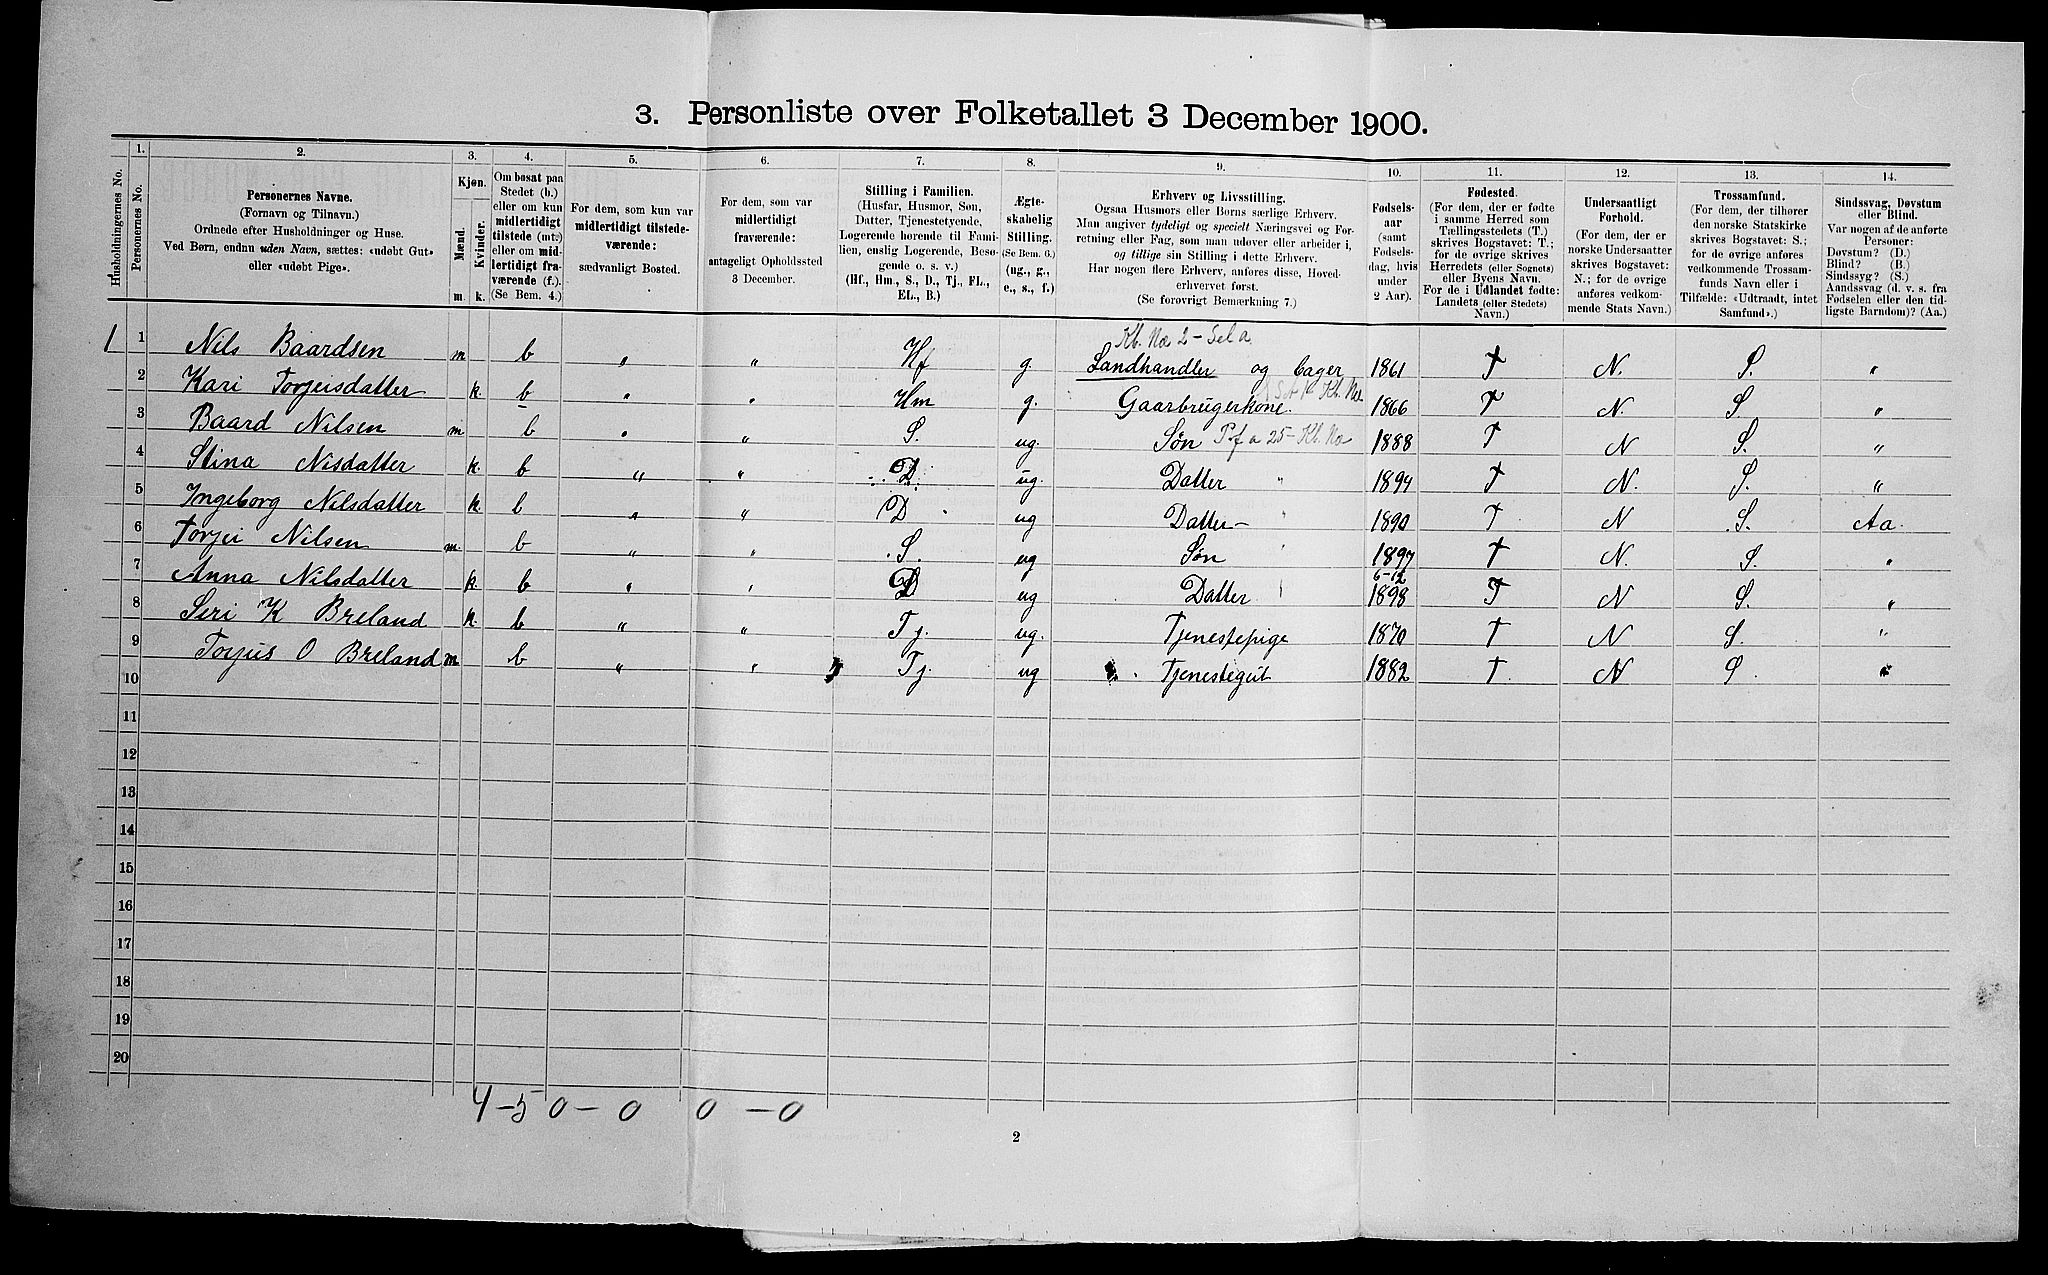 3. Personliste over Folketallet 3 December 1900.
Husholdningernes No.
1.
Personernes No.
2.
Personernes Navne.
(Fornavn og Tilnavn.)
Ordnede efter Husholdninger og Huse.
Ved Børn, endnu uden Navn, sættes: «udøbt Gut»
eller «udøbt Pige».
3.
Kjøn.
Mænd.
Kvinder.
m. k.
4.
Om bosat paa
Stedet (b.)
eller om kun
midlertidigt
tilstede (mt.)
eller om mid-
lertidigt fra-
værende (f.).
(Se Bem. 4.)
5.
For dem, som kun var
midlertidigt tilstede-
værende:
sædvanligt Bosted.
6.
For dem, som var
midlertidigt
fraværende:
antageligt Opholdssted
3 December.
7.
Stilling i Familien.
(Husfar, Husmor, Søn,
Datter, Tjenestetyende,
Logerende hørende til Fami-
lien, enslig Logerende, Besø-
gende o. s. v.)
(Hf., Hm., S., D., Tj., FL.,
EL., B.)
8.
Ægte-
skabelig
Stilling.
(Se Bem. 6.)
(ug., g.,
e., s., f.)
9.
Erhverv og Livsstilling.
Ogsaa Husmors eller Børns særlige Erhverv.
Man angiver tydeligt og specielt Næringsvei og For-
retning eller Fag, som man udøver eller arbeider i,
og tillige sin Stilling i dette Erhverv.
Har nogen flere Erhverv, anføres disse, Hoved-
erhvervet først.
(Se forøvrigt Bemærkning 7.)
10.
Fødsels-
aar
(samt
Fødsels-
dag, hvis
under
2 Aar).
11.
Fødested.
(For dem, der er fødte
i samme Herred som
Tællingsstedets (T.)
skrives Bogstavet: T.;
for de øvrige skrives
Herredets (eller Sognets)
eller Byens Navn.
For de i Udlandet fødte:
Landets (eller Stedets)
Navn.)
12.
Undersaatligt
Forhold.
(For dem, der er
norske Undersaatter
skrives Bogstavet:
N.; for de øvrige
anføres vedkom-
mende Stats Navn.)
13.
Trossamfund.
(For dem, der tilhører
den norske Statskirke
skrives Bogstavet: S.;
for de øvrige anføres
vedkommende Trossam-
funds Navn eller i
Tilfælde: «Udtraadt, intet
Samfund».)
14.
Sindssvag, Døvstum
eller Blind.
Var nogen af de anførte
Personer:
Døvstum? (D.)
Blind? (B.)
Sindssyg? (S.)
Aandssvag (d. v. s. fra
Fødselen eller den tid-
ligste Barndom)? (Aa.)
Kb. Na 2 - Sel a
1 1 Nils Baardsen m b " " Hf g. Landhandler og Eager 1861 T N. S. "
2 Kari Torjeisdatter k. b " " Hm g. Gaarbrugerkone. 1866 T N. S "
3 Baard Nilsen m b " " S. ug. Søn 1888 T N S. "
4 Stina Nisdatter k. b " " D ug. Datter " 1894 T N. S. "
5 Ingeborg Nilsdatter k. b " " D ug Datter - " 1890 T. N S. Aa.
6 Torjei Nilsen m. b " " S. ug Søn " 1897 T N. S. "
7 Anna Nilsdatter k. b " " D ug Datter 6-12 1898 T N S. "
8 Seri K Breland k. b " " Tj. ug. Tjenestepige 1870 T N S. "
9 Torjus O Breland m b " " Tj. ug Tjenestegut 1882 T. N S. "
10
11
12
13
14
15
16
17
18
19
20
4 - 5 0 - 0 0 - 0
2